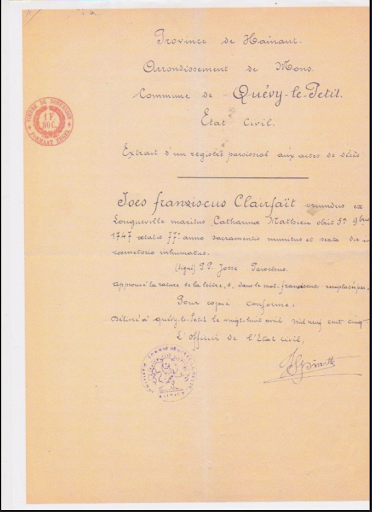 Province de Hainaut.
Arrondissement de Mons.
Commune de Quévy-le-Petit.
Etat Civil.
1 F
Extrait d'un registre paroissial aux actes de décès
Joes franciscus Clairfaÿt oriundus ex
Longueville maritus Catharina Mathieu obiit 5ª 9bris
1747 ætatis 77º anno sacramentis munitus et sexta die
cœmeterio inhumatus.
(signé) P.P. Josse
Approuvé la rature de la lettre, s, dans le mot franciscus
Pour copie conforme:
Délivré à Quévy-le-Petit le vingt huit mil neuf cent cinq
L'Officier de l'Etat civil,